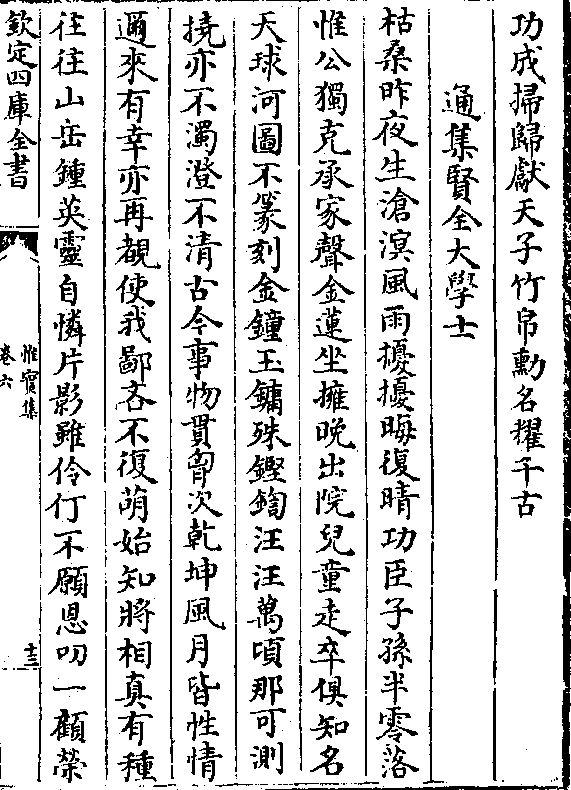 功成掃歸獻天子竹帛勳名耀千古
通集賢全大學士
枯桑昨夜生滄溟風雨擾擾晦復晴功臣子孫半零落
惟公獨克承家聲金蓮坐擁晚出院兒童走卒俱知名
天球河圖不篆刻金鐘玉鏞殊鏗鍧汪汪萬頃那可測
撓亦不濁澄不清古今事物貫胷次乾坤風月皆性情
邇來有幸亦再覩使我鄙吝不復萌始知將相真有種
往往山岳鍾英靈自憐片影雖伶仃不願恩叨一顧榮
欽定四庫全書
惟實集
卷六
十三